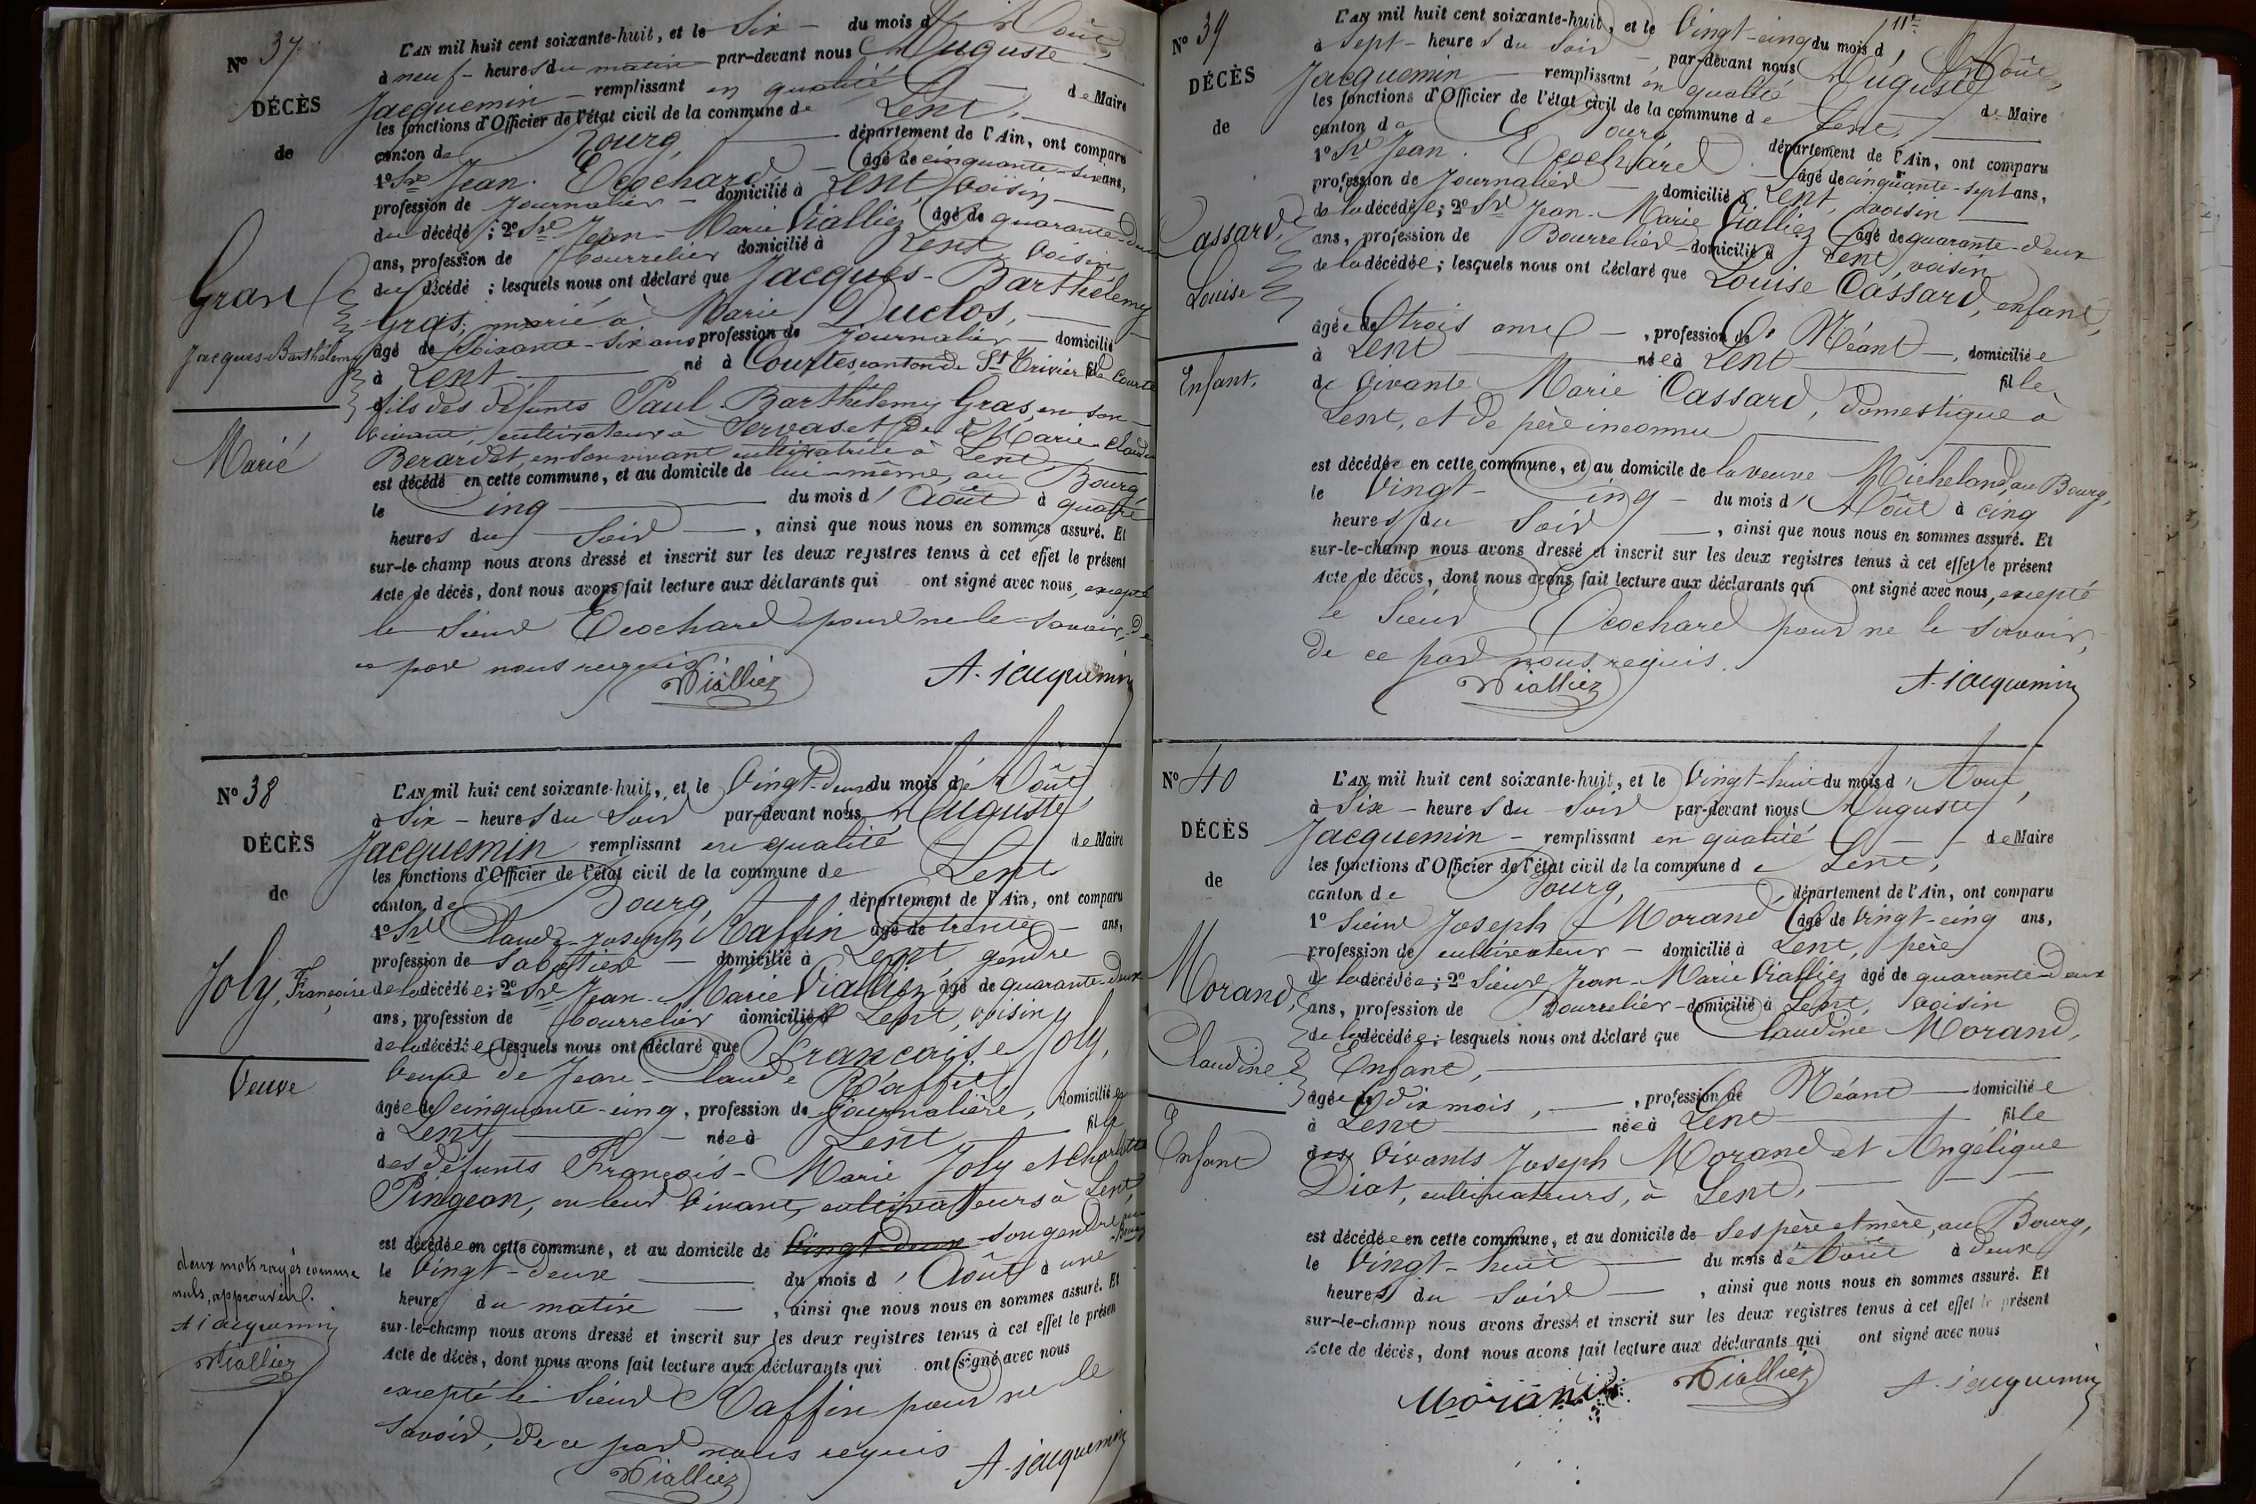 N° 37
DÉCÈS
de
Gras
Jacques-Barthélemy
Marié
L'AN mil huit cent soixante-huit, et le Six du mois d'Août,
à neuf heures du matin par-devant nous Auguste
Jacquemin remplissant en qualité de Maire
les fonctions d'Officier de l'état civil de la commune de Lent,
canton de Bourg, département de l'Ain, ont comparu
1° Sr Jean Ecochard âgé de cinquante-six ans,
profession de Journalier domicilié à Lent, voisin
du décédé ; 2° Sr Jean-Marie Vialliez âgé de quarante-deux
ans, profession de bourrelier domicilié à Lent, voisin
du décédé ; lesquels nous ont déclaré que Jacques-Barthélemy
Gras, marié à Marie Duclos,
âgé de Soixante-six ans profession de journalier domicilié
à Lent né à Courtes, canton de St Trivier de Courtes
fils des défunts Paul-Barthélemy Gras, en son
vivant, cultivateur à Servas et de Marie-Claudine
Berardet, en son vivant cultivatrice à Lent
est décédé en cette commune, et au domicile de lui-même, au Bourg,
le Cinq du mois d'Août à quatre
heures du Soir, ainsi que nous nous en sommes assuré. Et
sur-le-champ nous avons dressé et inscrit sur les deux registres tenus à cet effet le présent
Acte de décès, dont nous avons fait lecture aux déclarants qui ont signé avec nous, excepté
le Sieur Ecochard pour ne le savoir, de
ce par nous requis
Vialliez A. Jacquemin
N° 38
DÉCÈS
de
Joly, Françoise
Veuve
deux mots rayés comme
nuls, approuvé.
A. Jacquemin
Vialliez
L'AN mil huit cent soixante-huit, et le Vingt-deux du mois d'Août
à Six heures du Soir par-devant nous Auguste
Jacquemin remplissant en qualité de Maire
les fonctions d'Officier de l'état civil de la commune de Lent
canton de Bourg, département de l'Ain, ont comparu
1° Sr Claude-Joseph Raffin âgé de trente ans,
profession de Sabotier domicilié à Lent gendre
de la décédée ; 2° Sr Jean-Marie Vialliez, âgé de quarante-deux
ans, profession de bourrelier domicilié à Lent, voisin
de la décédée lesquels nous ont déclaré que Françoise Joly,
Veuve de Jean-Claude Raffin,
âgée de cinquante-cinq, profession de Journalière, domiciliée
à Lent née à Lent fille
des défunts François-Marie Joly et Charlotte
Pingeon, en leur vivant, cultivateurs à Lent,
est décédée en cette commune, et au domicile de Vingt-deux son gendre, au Bourg
le Vingt-deux du mois d'Août à une
heure du matin, ainsi que nous nous en sommes assuré. Et
sur-le-champ nous avons dressé et inscrit sur les deux registres tenus à cet effet le présent
Acte de décès, dont nous avons fait lecture aux déclarants qui ont signé avec nous
excepté le Sieur Raffin pour ne le
savoir, de ce par nous requis
Vialliez A. Jacquemin
11e
N° 39
DÉCÈS
de
Cassard,
Louise
Enfant.
L'AN mil huit cent soixante-huit, et le Vingt-cinq du mois d'Août,
à Sept heures du Soir par-devant nous Auguste
Jacquemin remplissant en qualité de Maire
les fonctions d'Officier de l'état civil de la commune de Lent,
canton de Bourg département de l'Ain, ont comparu
1° Sr Jean Ecochard âgé de cinquante-sept ans,
profession de Journalier domicilié à Lent, voisin
de la décédée ; 2° Sr Jean-Marie Vialliez âgé de quarante-deux
ans, profession de Bourrelier domicilié à Lent, voisin
de la décédée ; lesquels nous ont déclaré que Louise Cassard, enfant,
âgée de trois ans, profession de Néant, domiciliée
à Lent née à Lent fille
de vivante Marie Cassard, domestique à
Lent, et de père inconnu
est décédée en cette commune, et au domicile de la veuve Micheland, au Bourg,
le Vingt-Cinq du mois d'Août à cinq
heures du Soir, ainsi que nous nous en sommes assuré. Et
sur-le-champ nous avons dressé et inscrit sur les deux registres tenus à cet effet le présent
Acte de décès, dont nous avons fait lecture aux déclarants qui ont signé avec nous, excepté
le Sieur Ecochard pour ne le savoir,
de ce par nous requis.
Vialliez A. Jacquemin
N° 40
DÉCÈS
de
Morand,
Claudine
Enfant
L'AN mil huit cent soixante-huit, et le Vingt-huit du mois d'Août,
à Six heures du Soir par-devant nous Auguste
Jacquemin remplissant en qualité de Maire
les fonctions d'Officier de l'état civil de la commune de Lent,
canton de Bourg, département de l'Ain, ont comparu
1° Sieur Joseph Morand âgé de vingt-cinq ans,
profession de cultivateur domicilié à Lent, père
de la décédée ; 2° Sieur Jean-Marie Vialliez âgé de quarante-deux
ans, profession de Bourrelier domicilié à Lent, voisin
de la décédée ; lesquels nous ont déclaré que Claudine Morand,
Enfant,
âgée de dix mois, profession de Néant domiciliée
à Lent née à Lent fille
des vivants Joseph Morand et Angélique
Diat, cultivateurs, à Lent,
est décédée en cette commune, et au domicile de Ses père et mère, au Bourg,
le Vingt-huit du mois d'Août à deux
heures du Soir, ainsi que nous nous en sommes assuré. Et
sur-le-champ nous avons dressé et inscrit sur les deux registres tenus à cet effet le présent
Acte de décès, dont nous avons fait lecture aux déclarants qui ont signé avec nous
Morand Vialliez A. Jacquemin